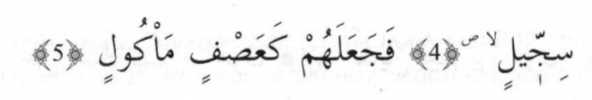 سِجّ۪يلٍۙ ص ﴿4﴾ فَجَعَلَهُمْ كَعَصْفٍ مَأْكُولٍ ﴿5﴾